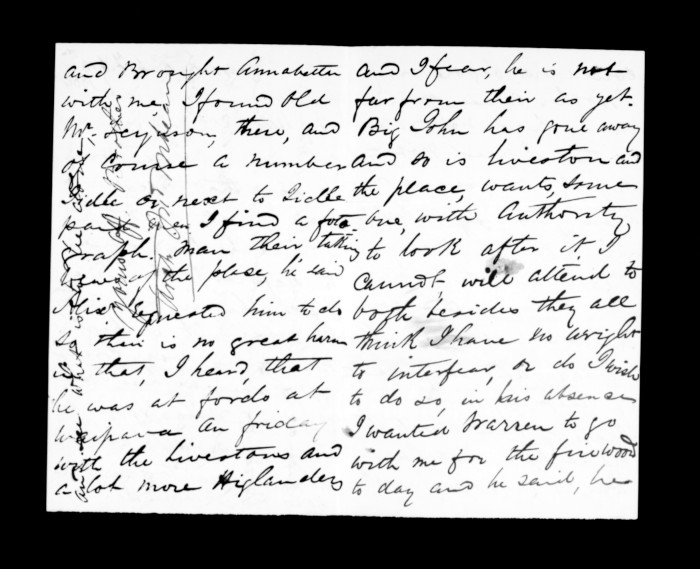 and Brought Annabella
with me I found Old
Mr. Ferguson, there, and
of Course a number
Iidle or next to Iidle
I find a foto
graph. man their taking
of the place, he said
Alixr Requested him to do
so, their is no great harm
in that, I heard, that
he was at fords at
waipawa on friday
with the Livestons and
a lot more Higlanders
and I fear, he is not
far from their as yet.
Big John has gone away
and so is liveston and
the place, wants, some
one, with Authority
to look after it I
Cannot, will attend to
both besides they all
think I have no wright
to interfear, or do I wish
to do so, in his absense
I wanted Warren to go
with me for the firewood
to day and he said, he